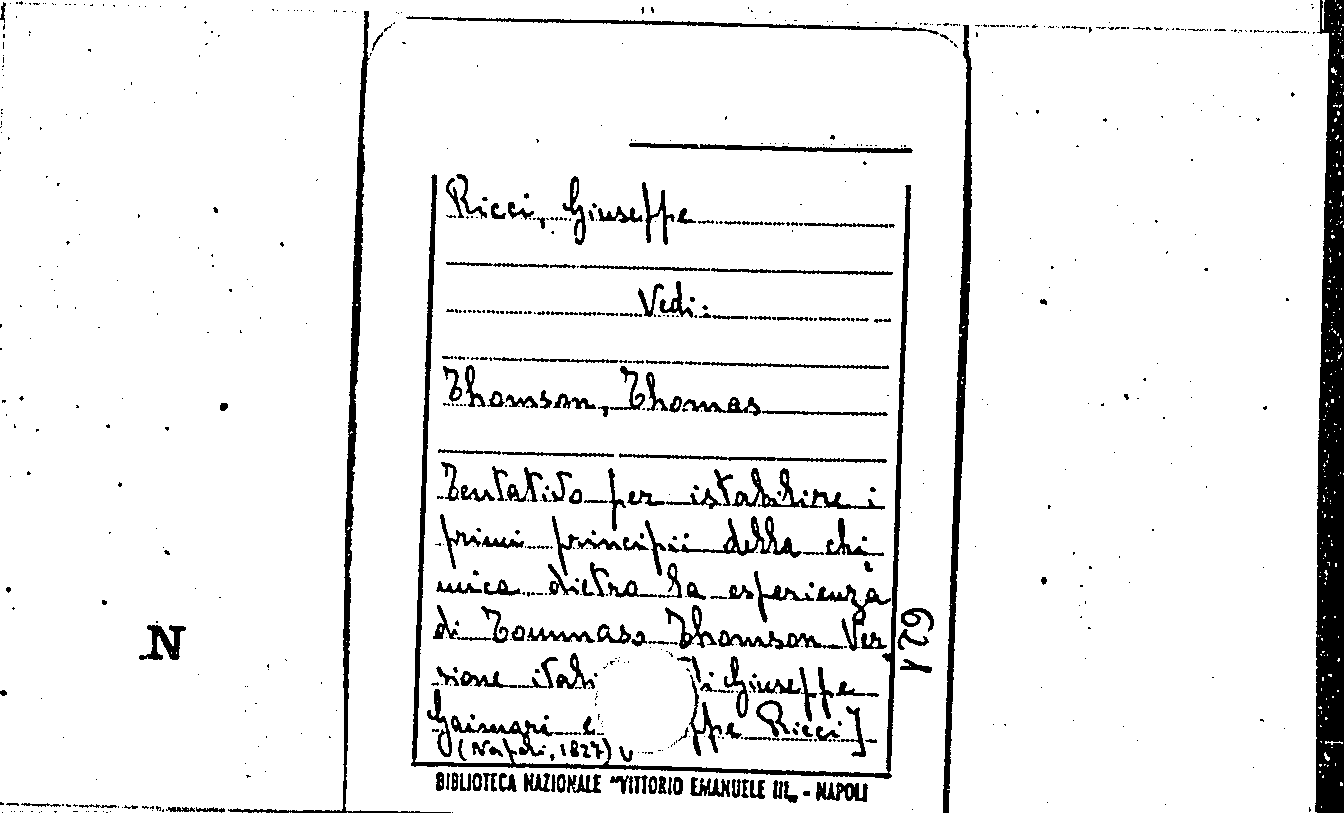 Ricci, Giuseppe
Vedi:
Thomson, Thomas
Tentativo per istabilire i
primi principii della chi
mica dietro la esperienza
di Tommaso Thomson Ver
sione itali di Giuseppe
Gaimari e ppe Ricci]
(Napoli, 1827)
BIBLIOTECA NAZIONALE "VITTORIO EMANUELE III„ - NAPOLI
N